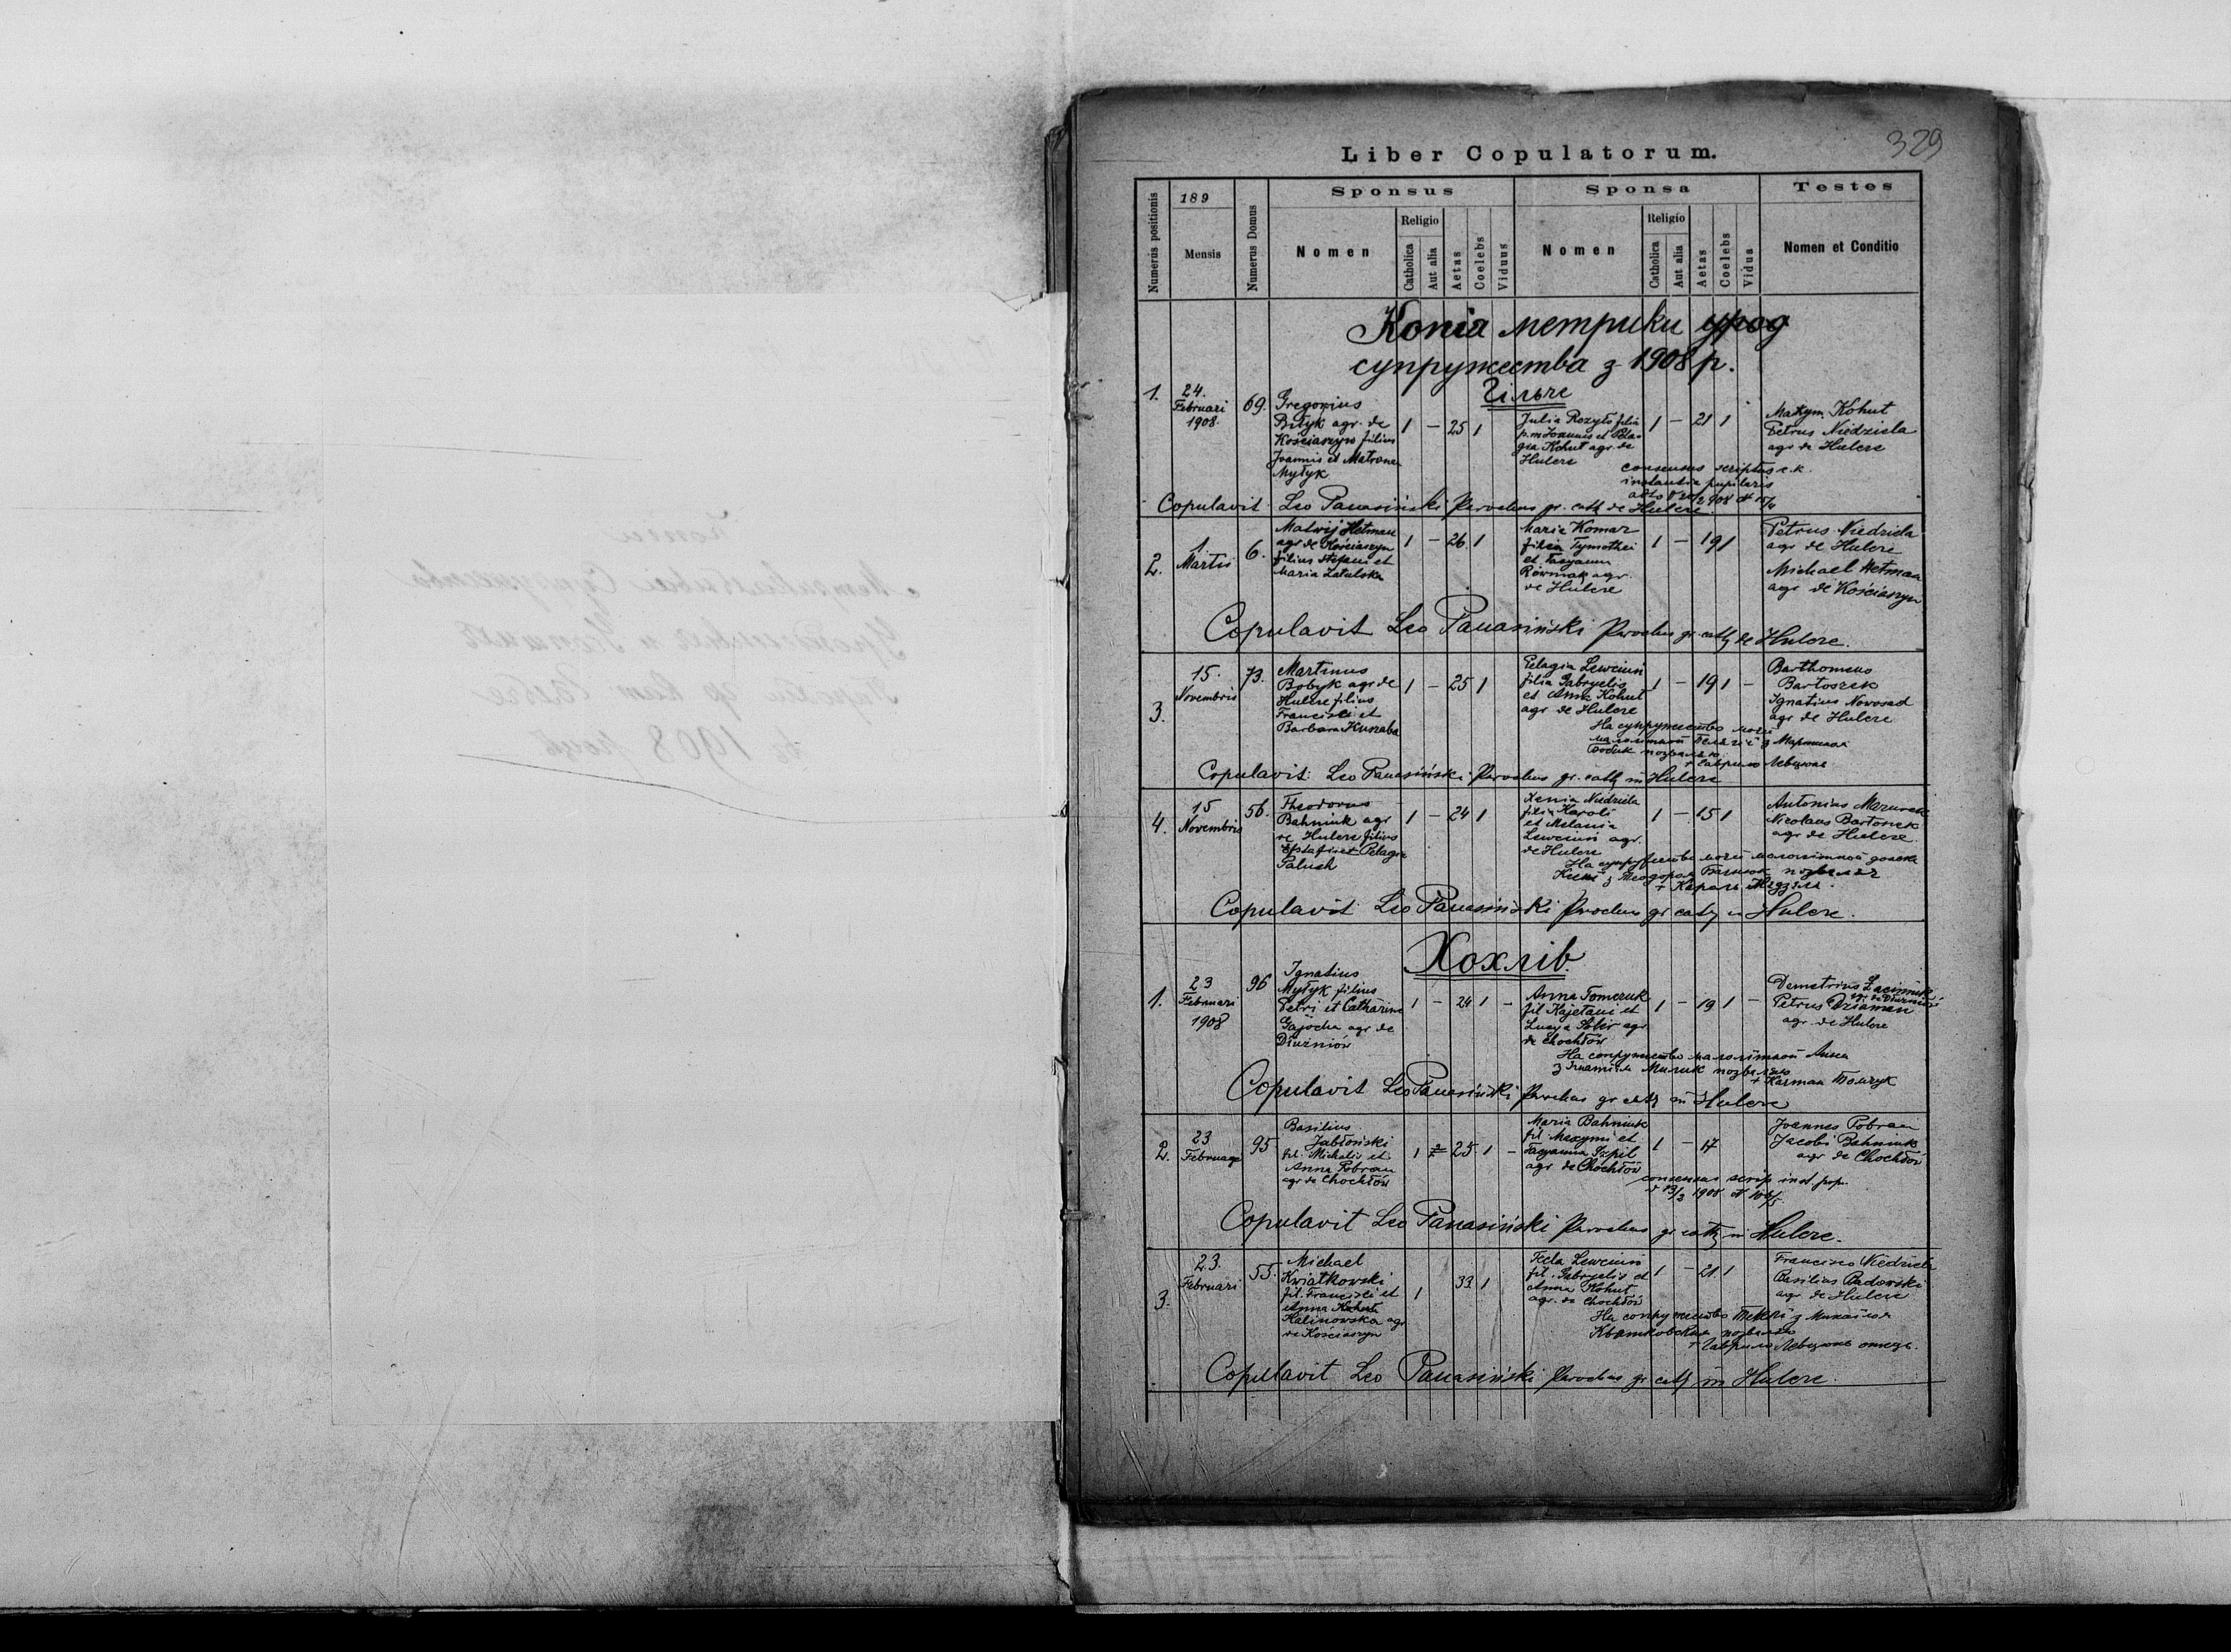 329
Liber Copulatorum.
Numerus positionis
189
Mensis
Numerus Domus
Sponsus
Nomen
Religio
Catholica
Aut alia
Aetas
Coelebs
Viduus
Sponsa
Nomen
Religio
Catholica
Aut alia
Aetas
Coelebs
Vidua
Testes
Nomen et Conditio
Копія метрики урод
супружества з 1908 р.
Гільче
1.
24.
Februari
1908.
69.
Gregorius
Bityk agr. de
Kościaszyn filius
Joannis et Matrona
Mytyk
1 – 25 1
Julia Rozyło filia
p.m Joannis et Pela-
gia Kohut agr. de
Hulcze
1 – 21 1
Maxym Kohut
Petrus Niedziela
agr de Hulcze
consensus scriptus c.k.
instantia pupilaris
Copulavit Leo Panasiński Parochus gr. cath de Hulcze.
2.
1
Martii
6.
Matwij Hetman
agr de Kościaszyn
filius Stefani et
Maria Zatulska
1 – 26 1
Maria Komar
filia Tymothei
et Tacyanna
Rówmak agr.
de Hulcze
1 – 19 1
Petrus Niedziela
agr de Hulcze
Michael Hetman
agr de Kościaszyn
Copulavit Leo Panasiński Parochus gr. cath de Hulcze.
3.
15.
Novembris
73.
Martinus
Bobyk agr de
Hulcze filius
Francisci et
Barbara Kuszaba
1 – 25 1
Pelagia Lewciuń
filia Gabryelis
et Anna Kohut
agr de Hulcze
1 – 19 1 –
Barthomeus
Bartoszek
Ignatius Novosad
agr de Hulcze
На супружество моєй
малолітной Пелягії з Мартином
Бобик позваляю
+ Гаврило Левцюнь
Copulavit: Leo Panasiński Parochus gr. cath in Hulcze
4.
15
Novembris
56.
Theodorus
Bahniuk agr
de Hulcze filius
Efstafi et Pelagia
Paluch
1 – 24 1
Xenia Niedziela
filia Karoli
et Melania
Lewciuń agr.
de Hulcze
1 – 15 1
Antonius Mazurek
Nicolaus Bartoszek
agr de Hulcze
На супружество моєй малолітной
з Теодором Багнюк позваляю
+ Кароль
Copulavit Leo Panasiński Parochus gr cath in Hulcze.
Хохлів.
1.
23
Februari
1908
96
Ignatius
Mytyk filius
Petri et Catharina
Gajocha agr de
Dłużniów
1 – 24 1 –
Anna Tomczuk
fil Kajetani et
agr
de Chochłów
1 – 19 1 –
Demetrius
agr de Dłużniów
Petrus Dziaman
agr de Hulcze
На сопружество малолітной Анни
з Ігнатієм Митик позваляю
+ Томчук
Copulavit Leo Panasiński Parochus gr cath in Hulcze
2.
23
Februari
95
Basilius
Jabłoński
fil. Michalis et
Anna Pobran
agr de Chochłów
1 = 25 1 –
Maria Bahniuk
fil. Maxymi et
Tacyanna Szpil
agr de Chochłów
1 – 17
Joannes Pobran
Jacobi Bahniuk
agr de Chochłów
consensus scrip inst. pup.
Copulavit Leo Panasiński Parochus gr cath in Hulcze.
3.
23.
Februari
55.
Michael
Kwiatkowski
fil. Francisci et
Anna
Kalinowska agr
de Kościaszyn
1 33 1
Tecla Lewciuń
fil. Gabryelis et
Anna Kohut
agr. de Chochłów
1 – 21 1
Francisco Niedziela
Basilius Badowski
agr de Hulcze
На сопружество Теклі з Михайлом
Квятковским позваляю
+ Гаврило Левцюнь отець.
Copulavit Leo Panasiński Parochus gr cath in Hulcze.